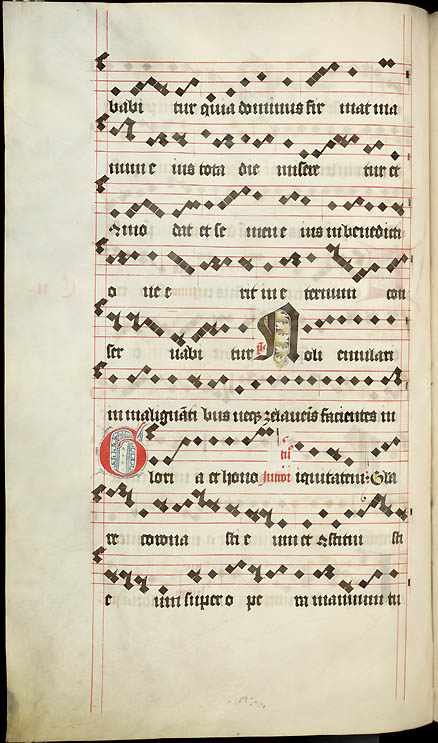 babi tur quia dominus fir mat ma
num e ius tota die misere tur et
dat et se men e ius in benedicti
o ne e rit in e ternum con
ser uabi tur Noli emulari
in malignanti bus neqz zelaueris facientes in
Glori a et hono iniquitatem: Gla
re corona sti e um et stitui sti
e um super o pe ra manuum tu